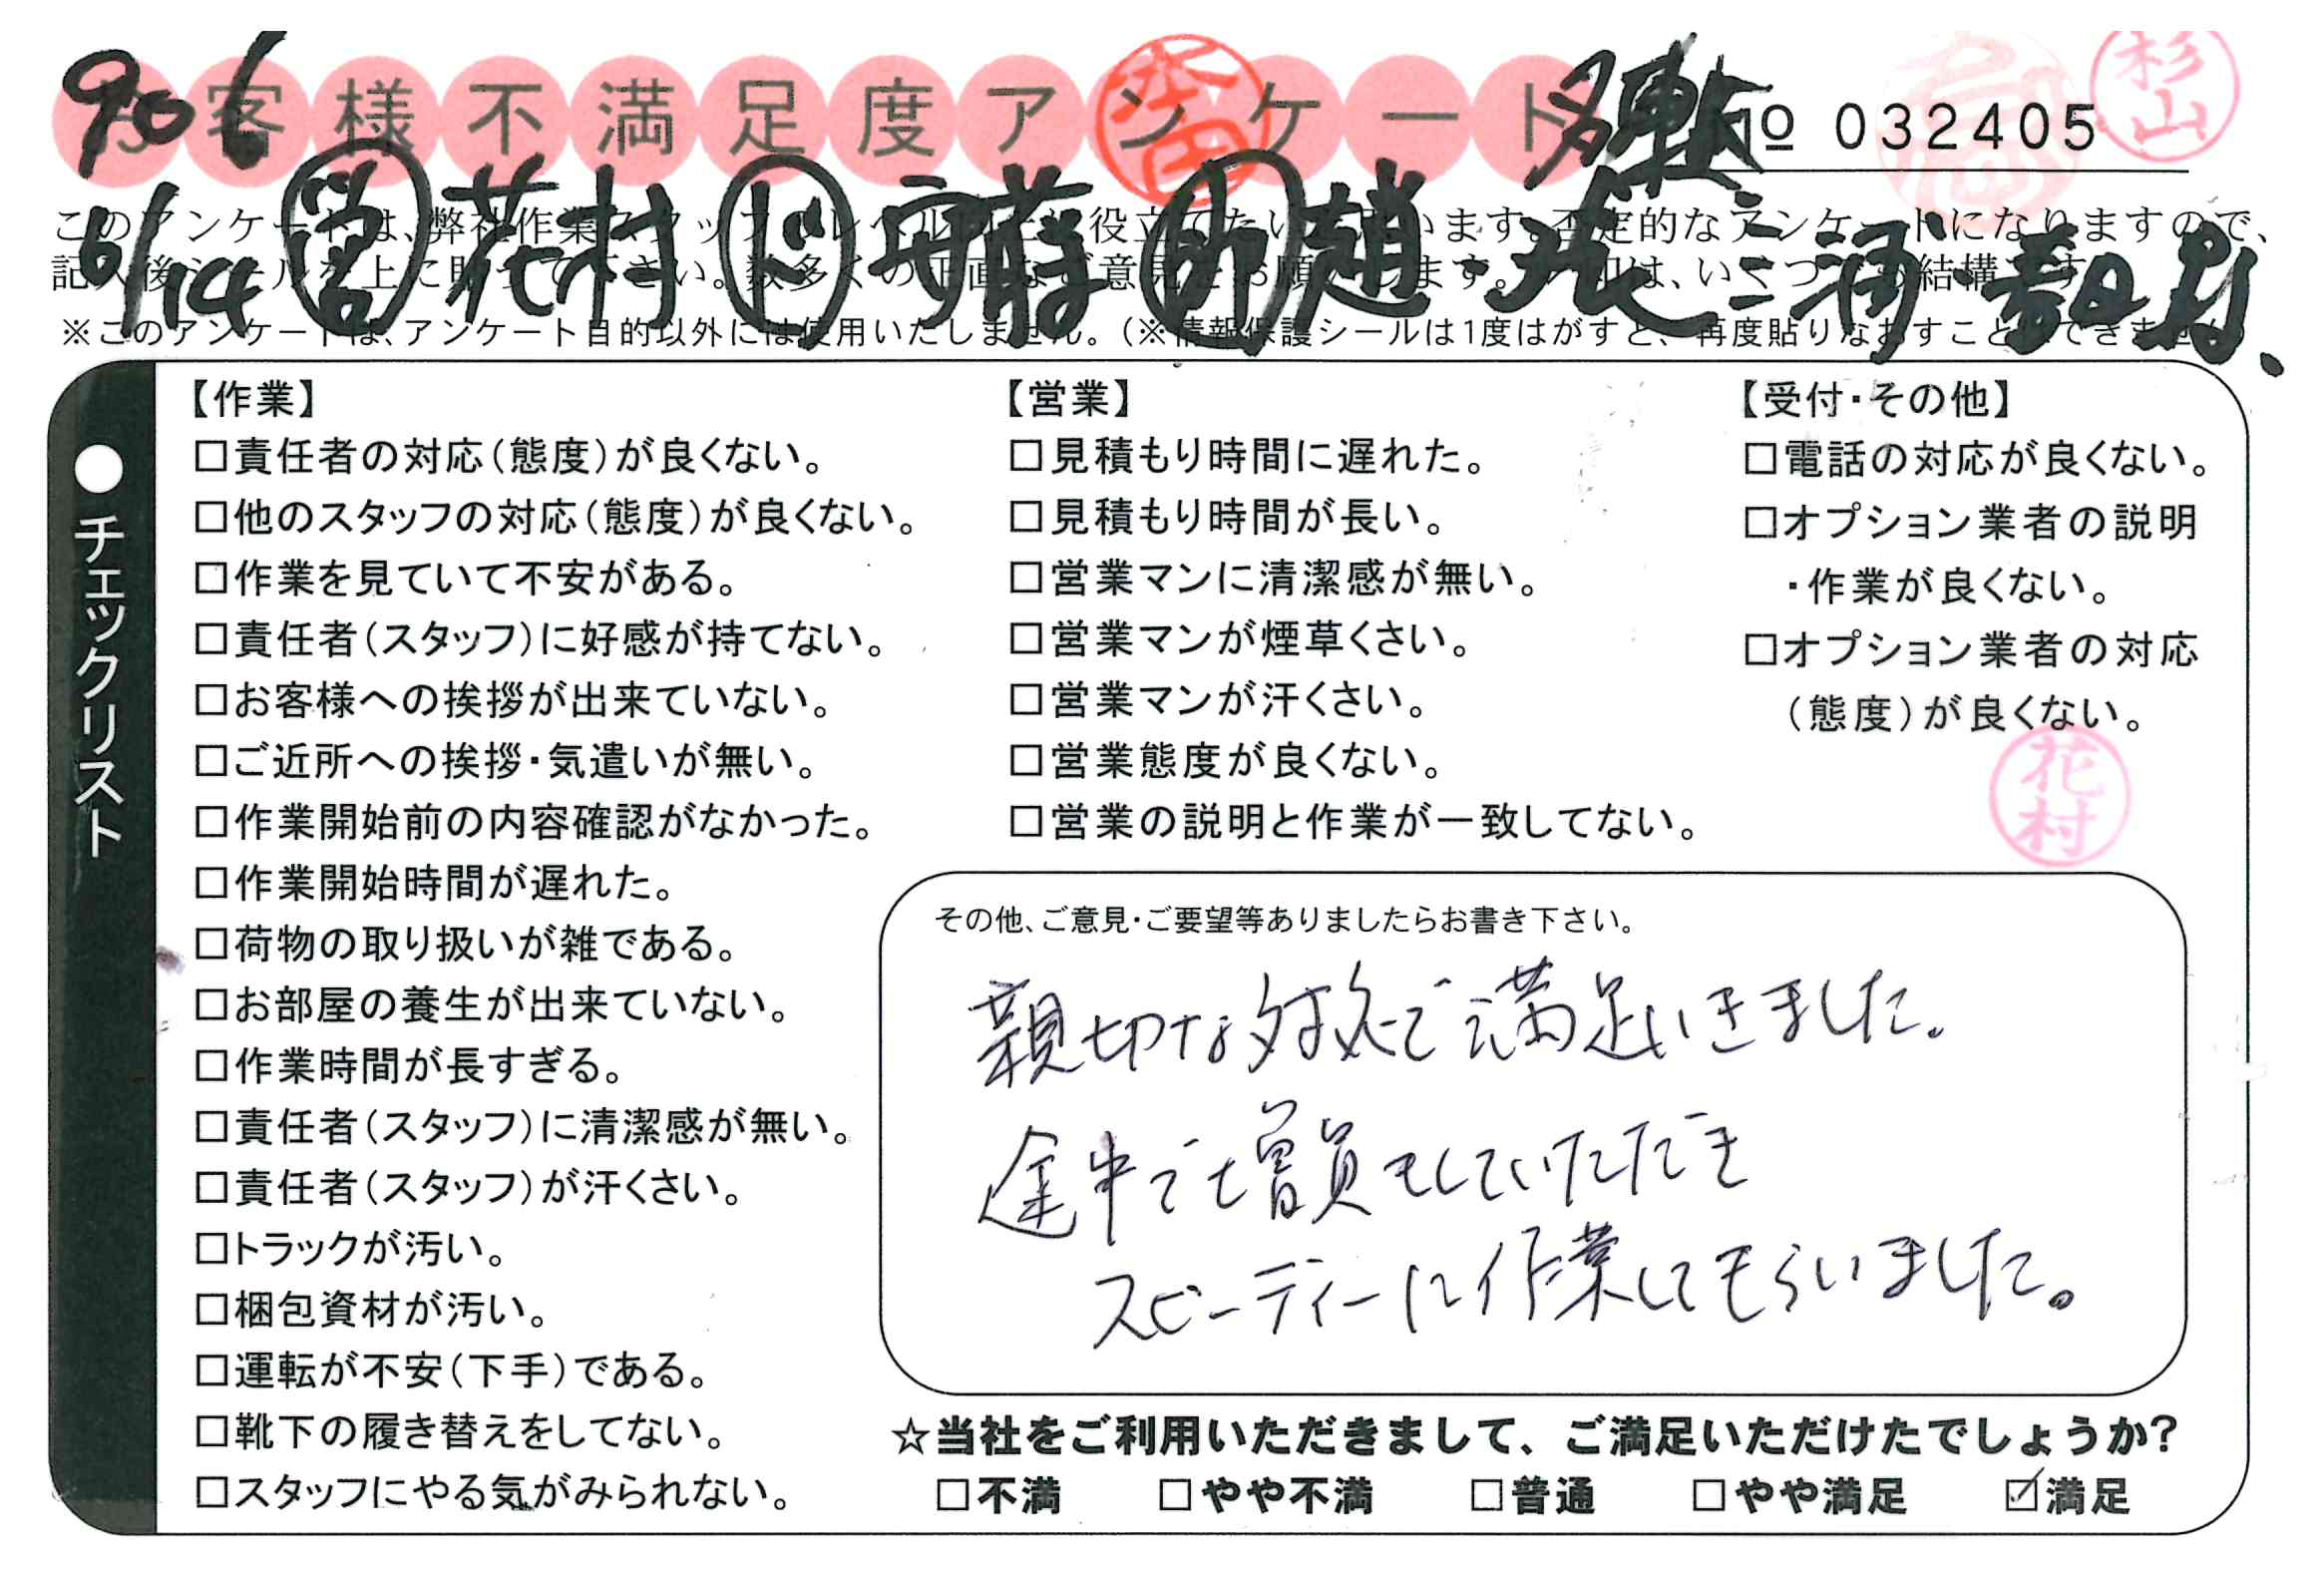 906
お客様不満足度アンケート
No 032405
杉山
6/14 営 花村 ド 安藤 助 趙
このアンケートは、弊社作業スタッフのレベル向上に役立てたいと思います。否定的なアンケートになりますので、
記入後シールを上に貼って下さい。数多くの正直なご意見をお願いします。
※このアンケートは、アンケート目的以外には使用いたしません。(※情報保護シールは1度はがすと、再度貼りなおすことはできません
●チェックリスト
【作業】
□責任者の対応(態度)が良くない。
□他のスタッフの対応(態度)が良くない。
□作業を見ていて不安がある。
□責任者(スタッフ)に好感が持てない。
□お客様への挨拶が出来ていない。
□ご近所への挨拶・気遣いが無い。
□作業開始前の内容確認がなかった。
□作業開始時間が遅れた。
□荷物の取り扱いが雑である。
□お部屋の養生が出来ていない。
□作業時間が長すぎる。
□責任者(スタッフ)に清潔感が無い。
□責任者(スタッフ)が汗くさい。
□トラックが汚い。
□梱包資材が汚い。
□運転が不安(下手)である。
□靴下の履き替えをしてない。
□スタッフにやる気がみられない。
【営業】
□見積もり時間に遅れた。
□見積もり時間が長い。
□営業マンに清潔感が無い。
□営業マンが煙草くさい。
□営業マンが汗くさい。
□営業態度が良くない。
□営業の説明と作業が一致してない。
【受付・その他】
□電話の対応が良くない。
□オプション業者の説明
・作業が良くない。
□オプション業者の対応
(態度)が良くない。
花村
その他、ご意見・ご要望等ありましたらお書き下さい。
親切な対処で満足いきました。
途中でも増員をしていただき
スピーディーに作業してもらいました。
☆当社をご利用いただきまして、ご満足いただけたでしょうか?
□不満 □やや不満 □普通 □やや満足 ☑満足